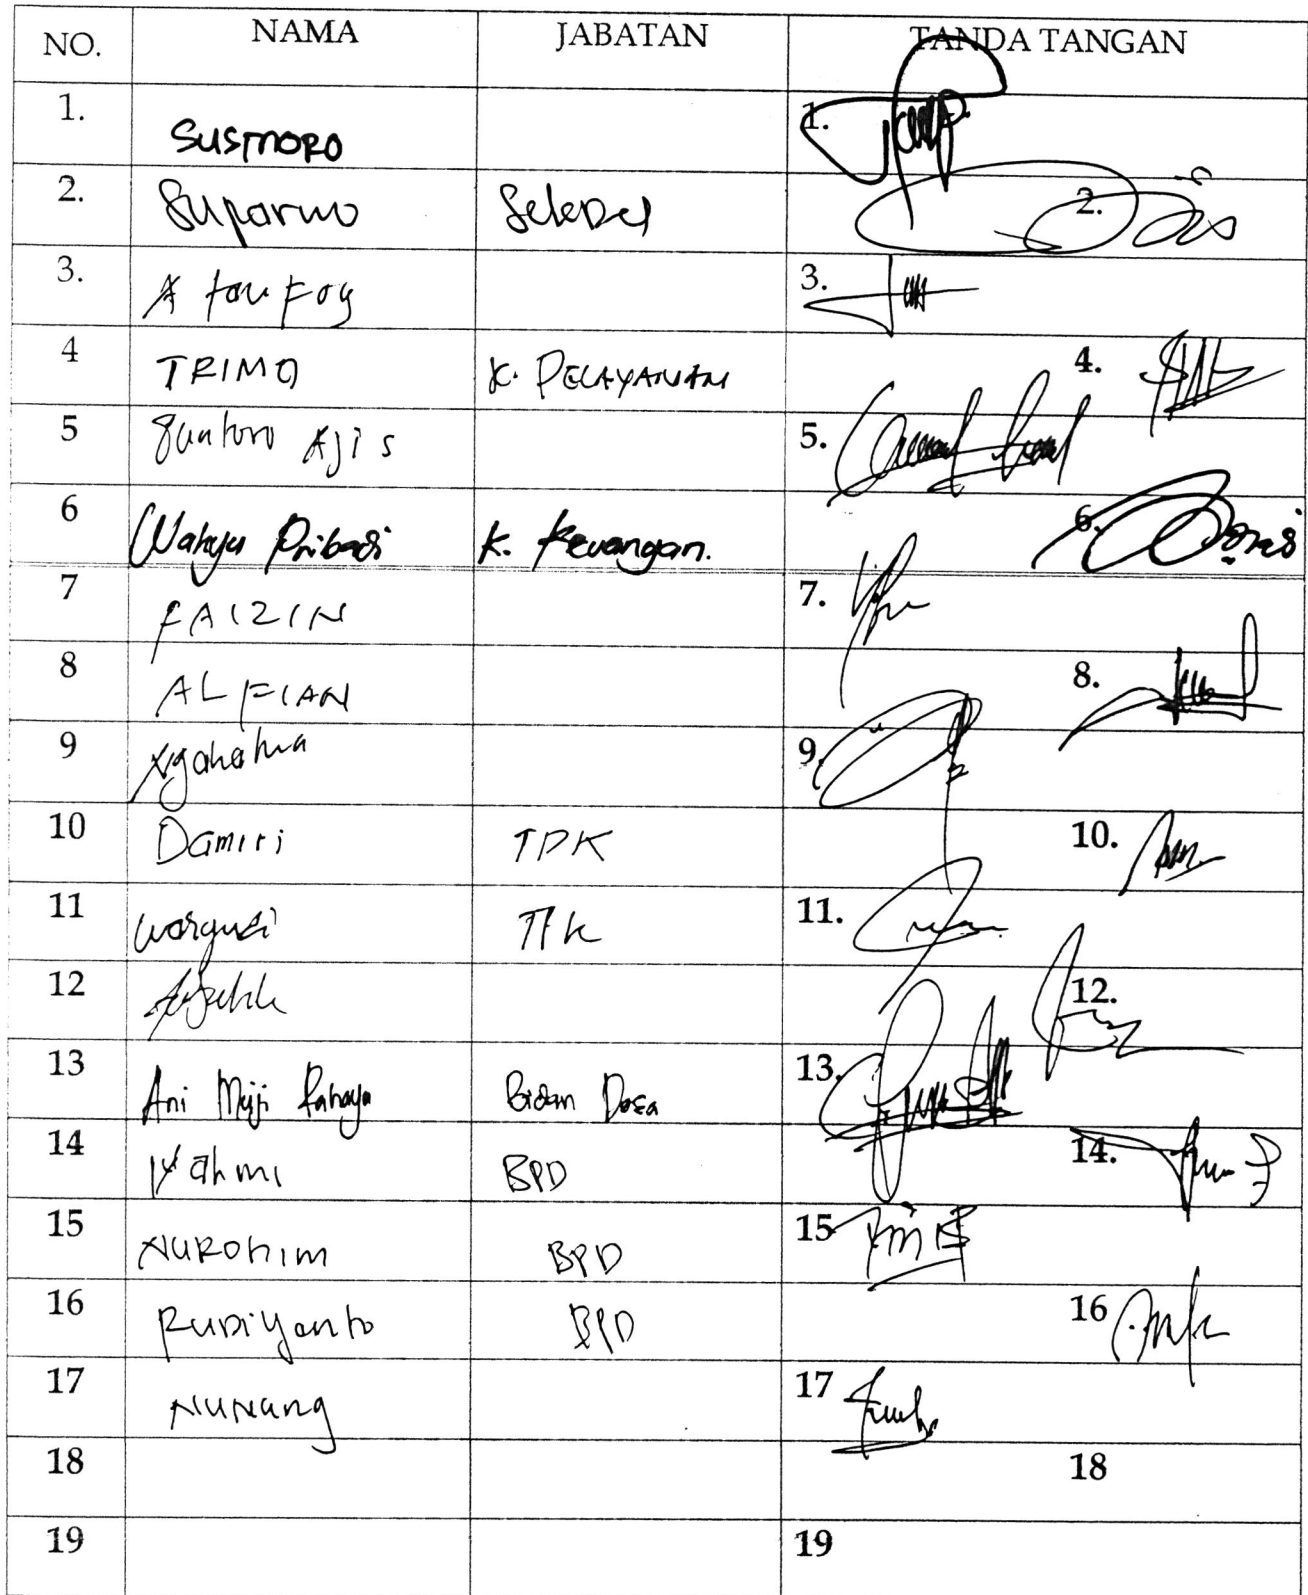 NO. NAMA JABATAN TANDA TANGAN
1. SUSMORO 1.
2. Suparmo 2.
3. A 3.
4 TRIMO K. PELAYANAN 4.
5 Suntoro Ajis 5.
6 Wahyu Pribadi K. Keuangan. 6.
7 FAIZIN 7.
8 ALFIAN 8.
9 9.
10 Damiri TPK 10.
11 TPK 11.
12 12.
13 Ani Muji Rahayu Bidan Desa 13.
14 BPD 14.
15 NUROHIM BPD 15
16 RUDiyanto BPD 16
17 NUNANG 17
18 18
19 19